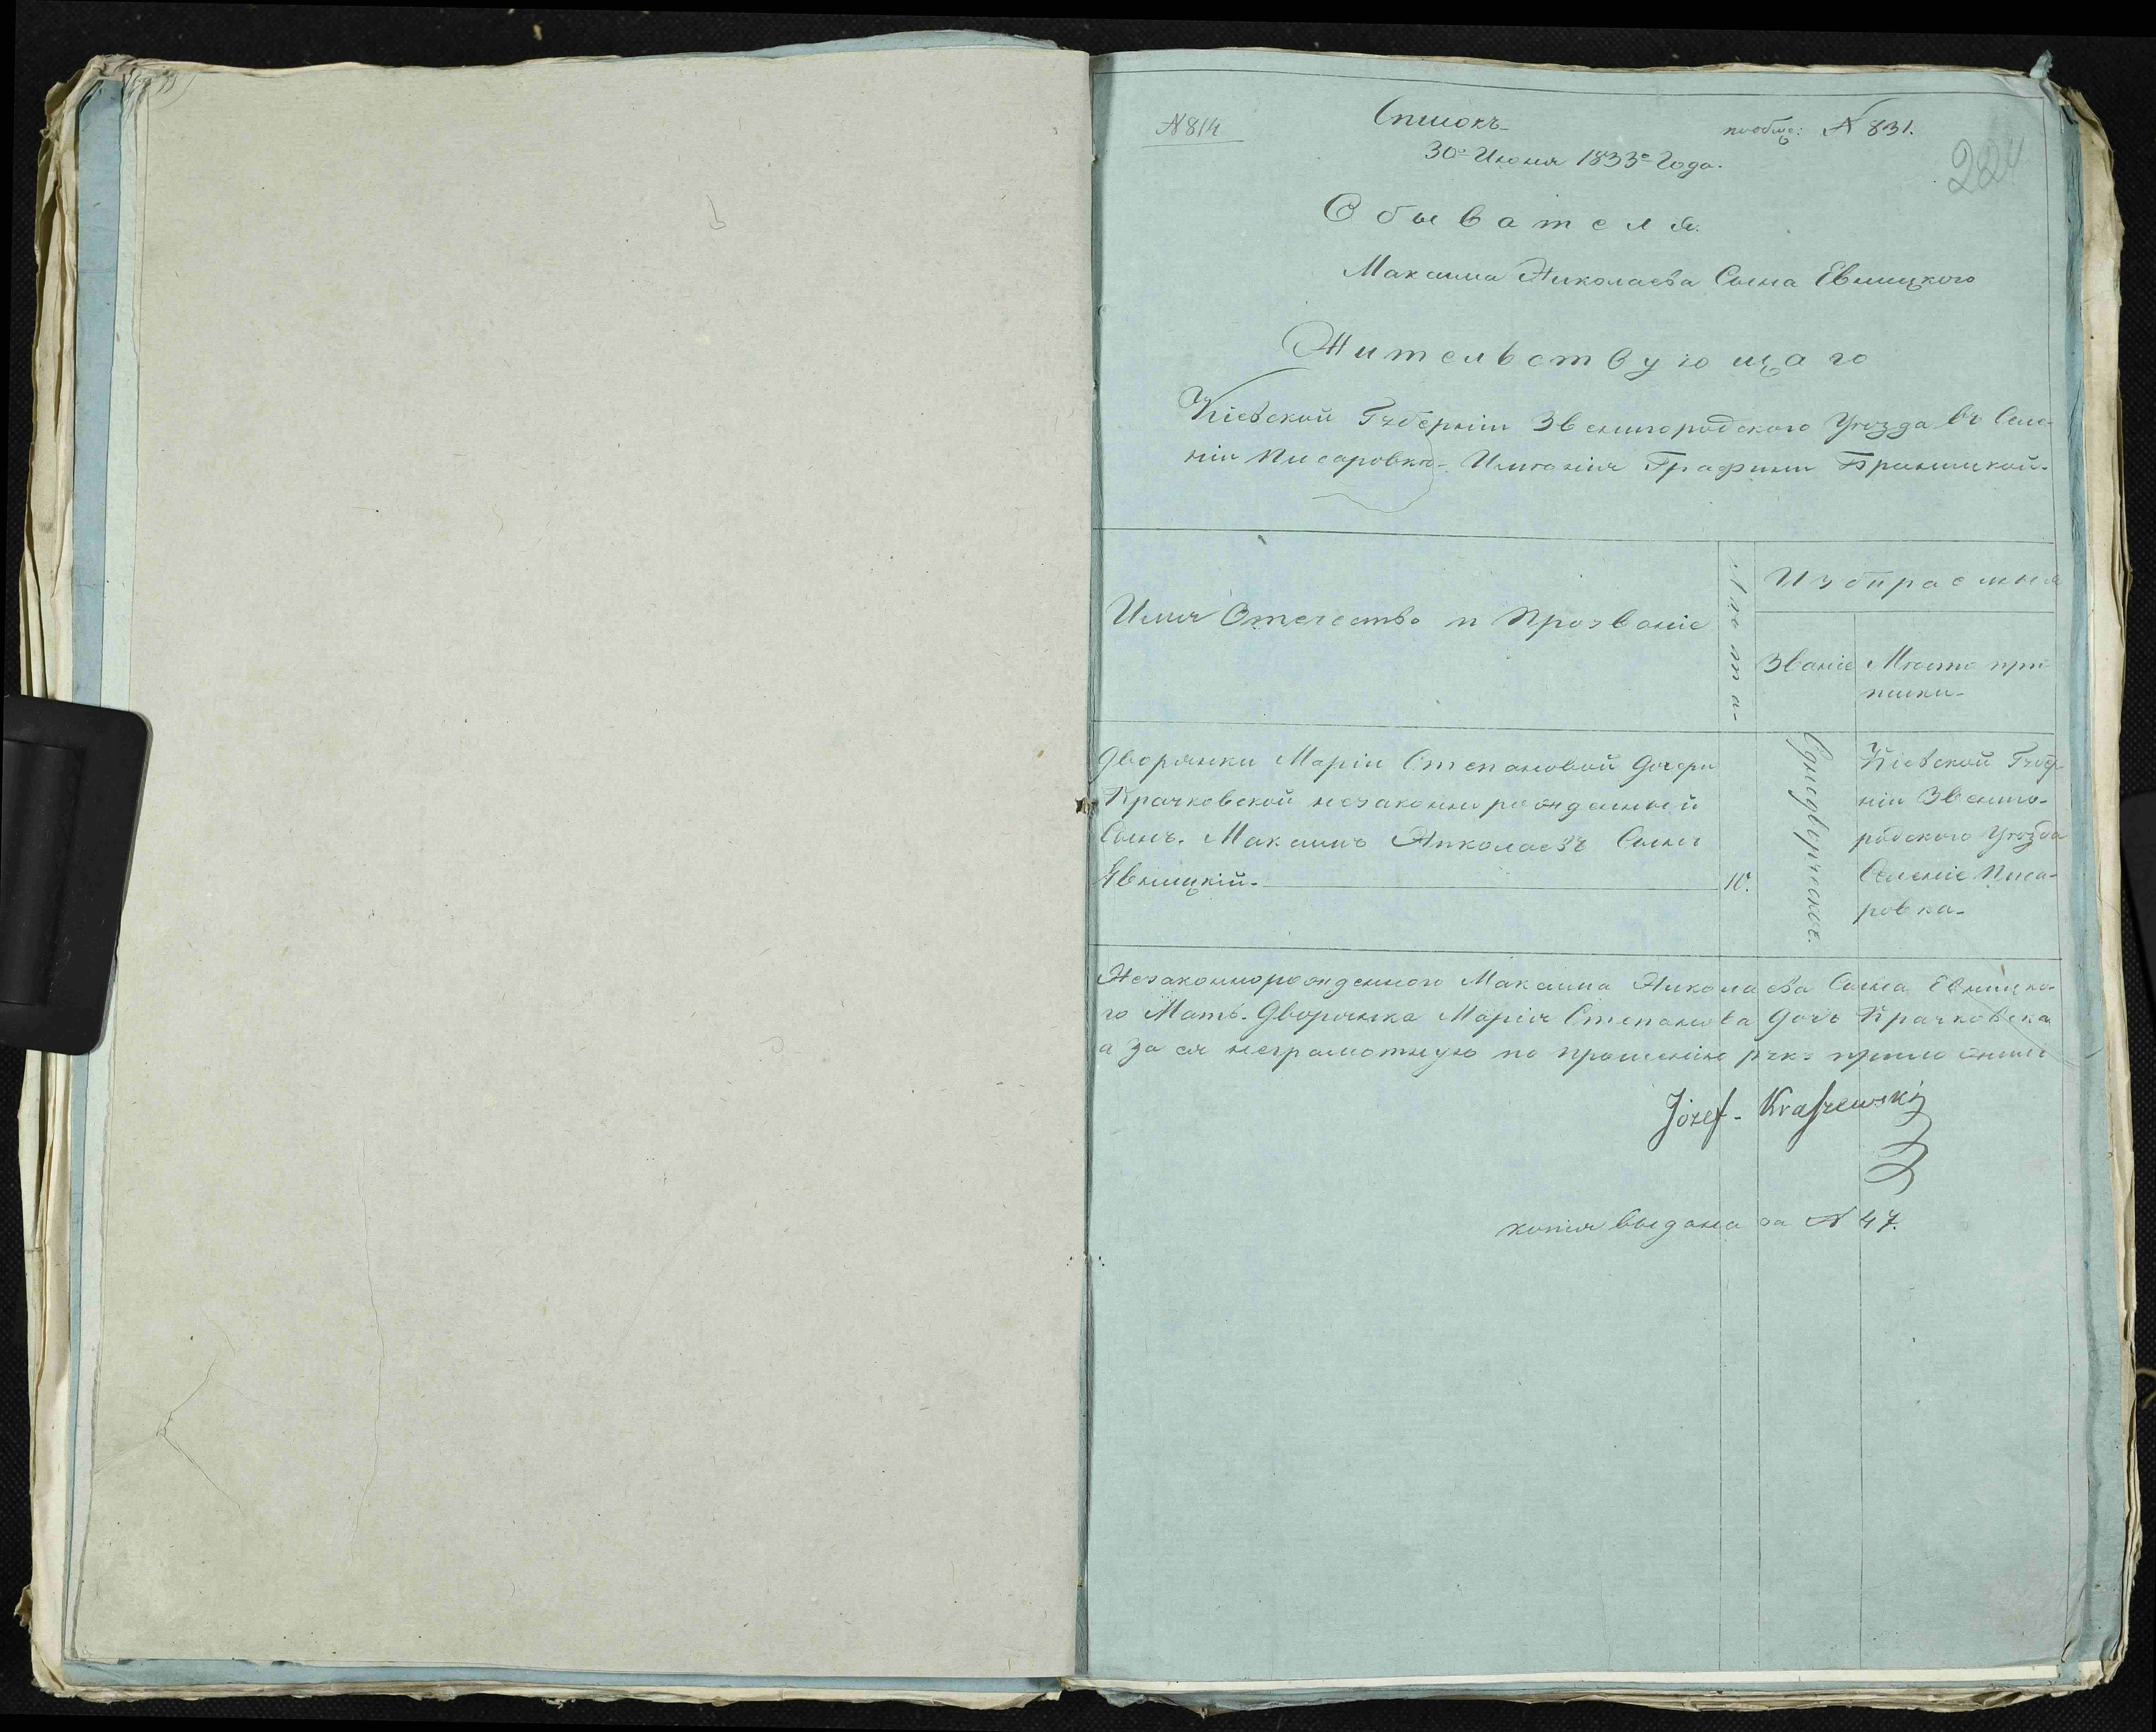 N 814
Списокъ
пообщ: N 831.
30го Июня 1833го Года.
224
Обывателя
Максима Николаева Сына Евницкого
Жительствующаго
Кіевской Губерніи Звенигородского Уѣзда въ Селе-
ніи Писаровкѣ Имѣнія Графини Браницкой.
Имя Отечество и Прозваніе
Лѣта
Избираемыя
Званіе
Мѣсто при-
писки
Дворянки Маріи Степановой дочери
Крачковской незаконнорожденный
Сынъ. Максимъ Николаевъ Сынъ
Евницкій.
10.
Однодворческое.
Кіевской Губер-
ніи Звениго-
родского Уѣзда
Селеніе Писа-
ровка
Незаконнорожденного Максима Николаева Сына Евницко-
го Мать Дворянка Марія Степанова дочь Крачковска
а за ея неграмотную по прошенію рук: приложилъ
Józef Kraszewski
копія выдана за N 47.